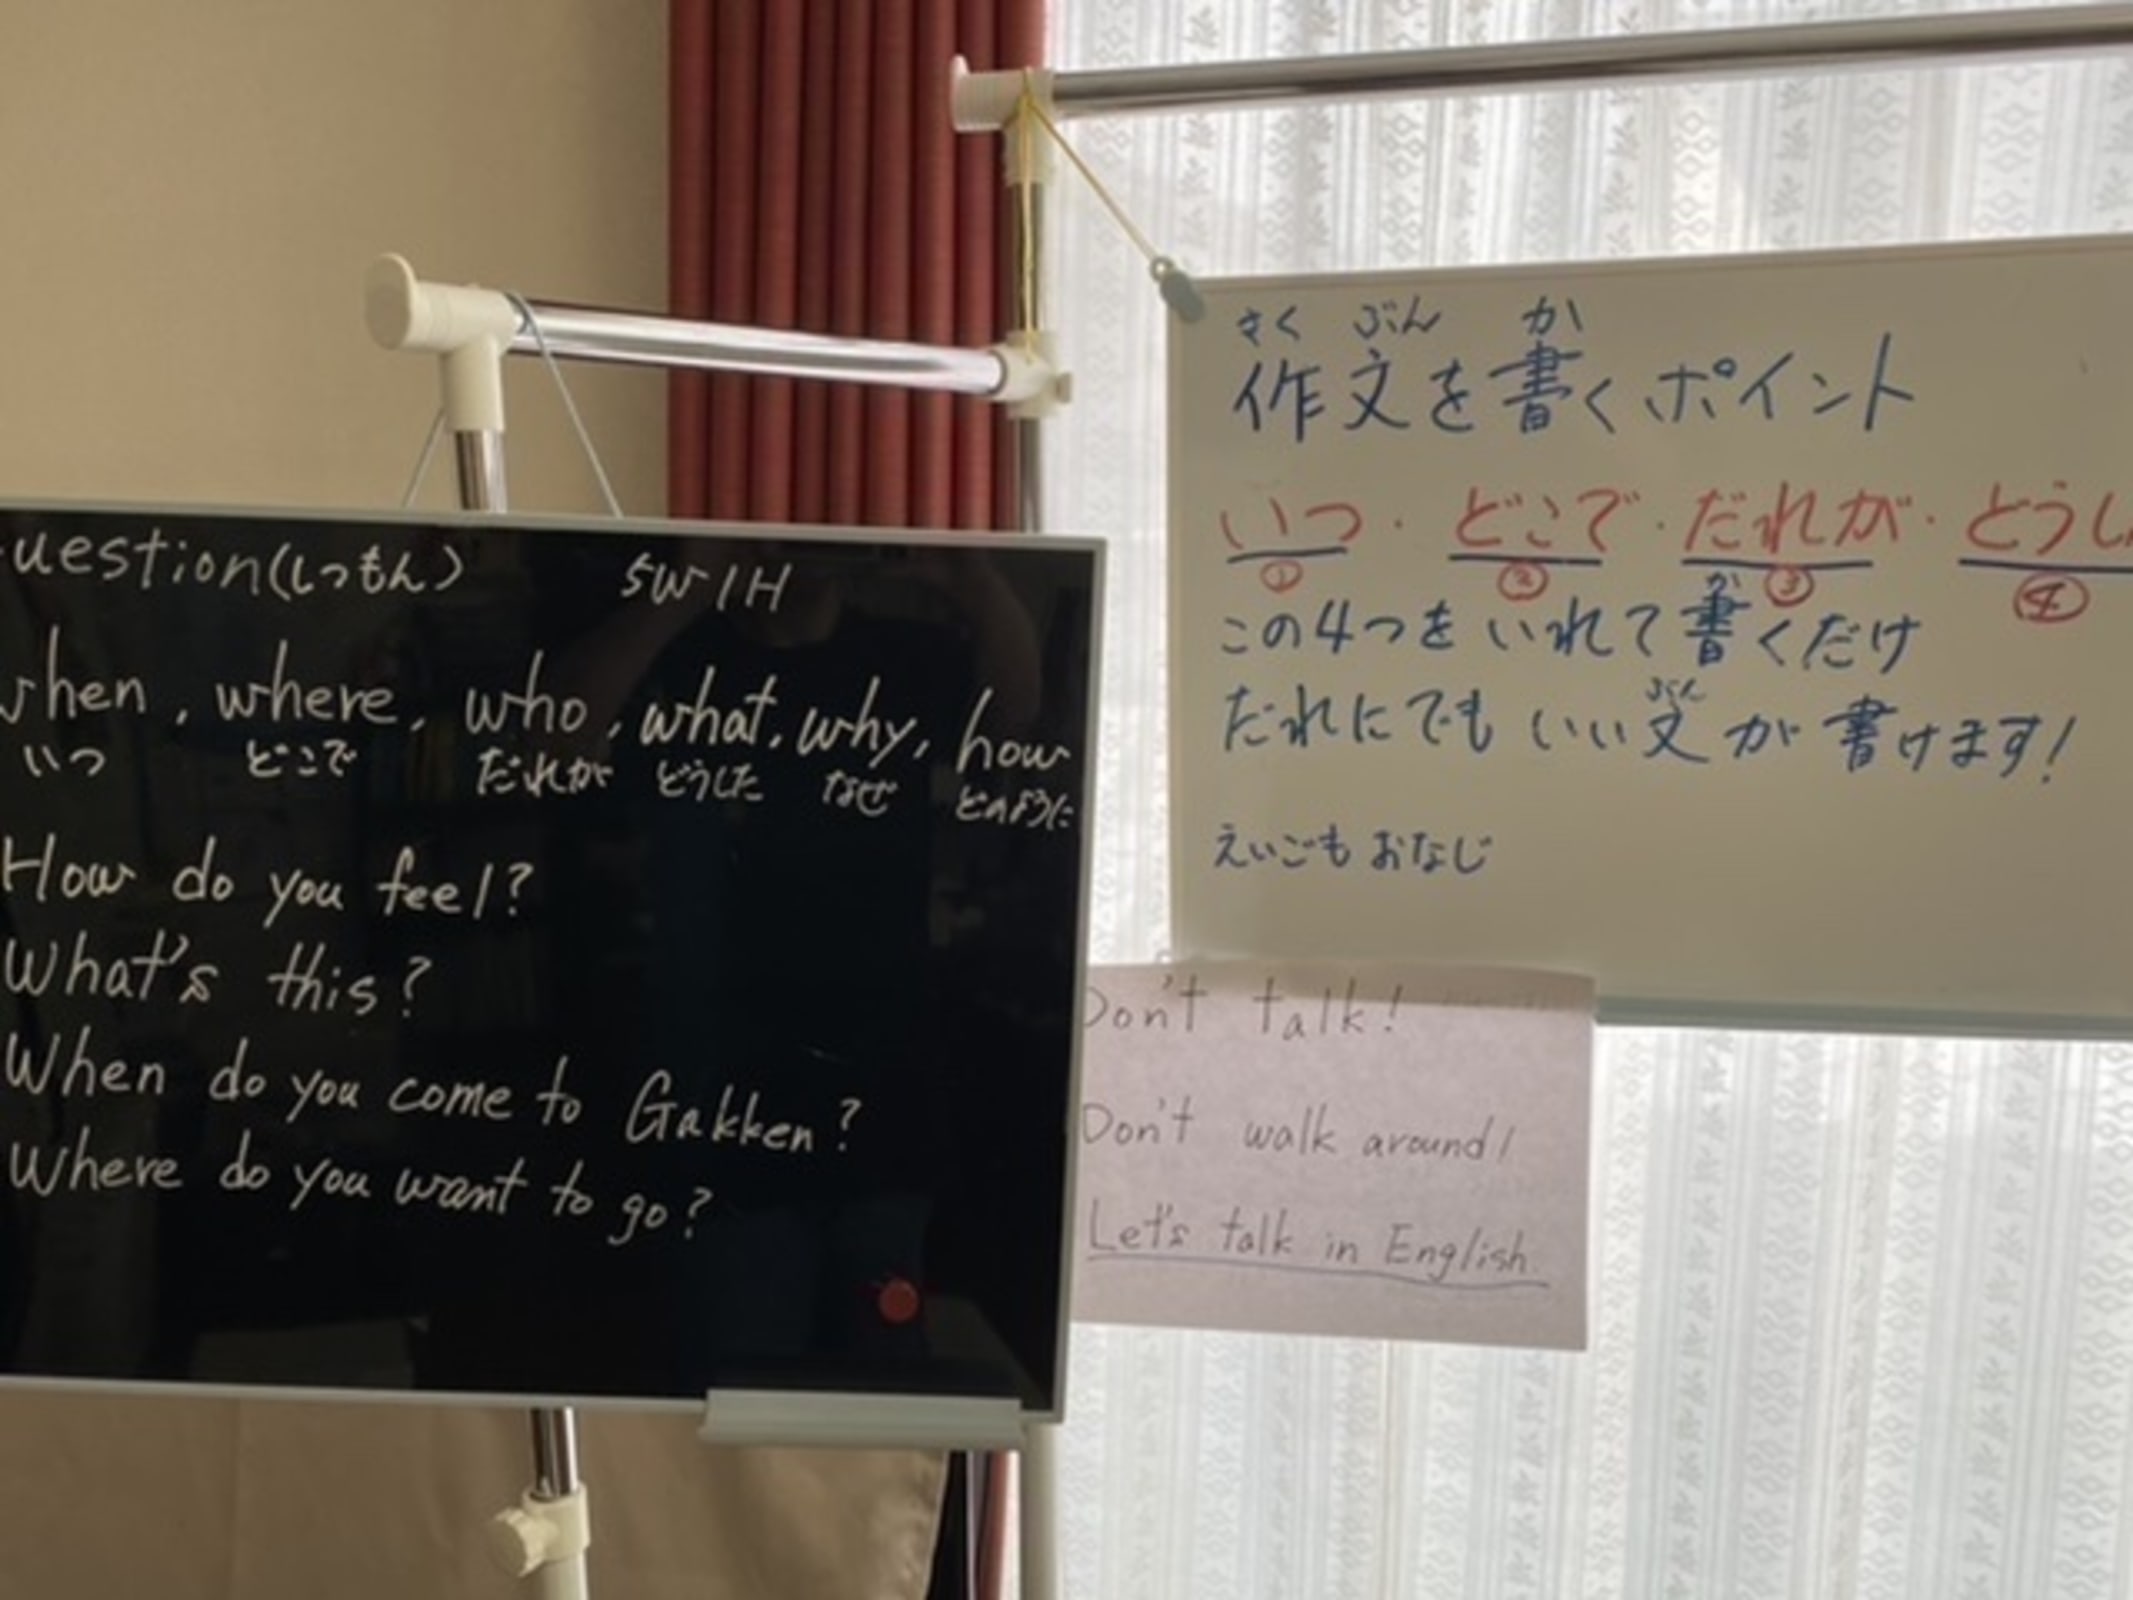 uestion(しつもん) 5W1H
when, where, who, what, why, how
いつ どこで だれが どうした なぜ どのように
How do you feel?
What's this?
When do you come to Gakken?
Where do you want to go?
さく ぶん か
作文を書くポイント
いつ・どこで・だれが・どうし
① ② ③ ④
か
この4つをいれて書くだけ
ぶん
だれにでもいい文が書けます!
えいごもおなじ
Don't talk!
Don't walk around!
Let's talk in English